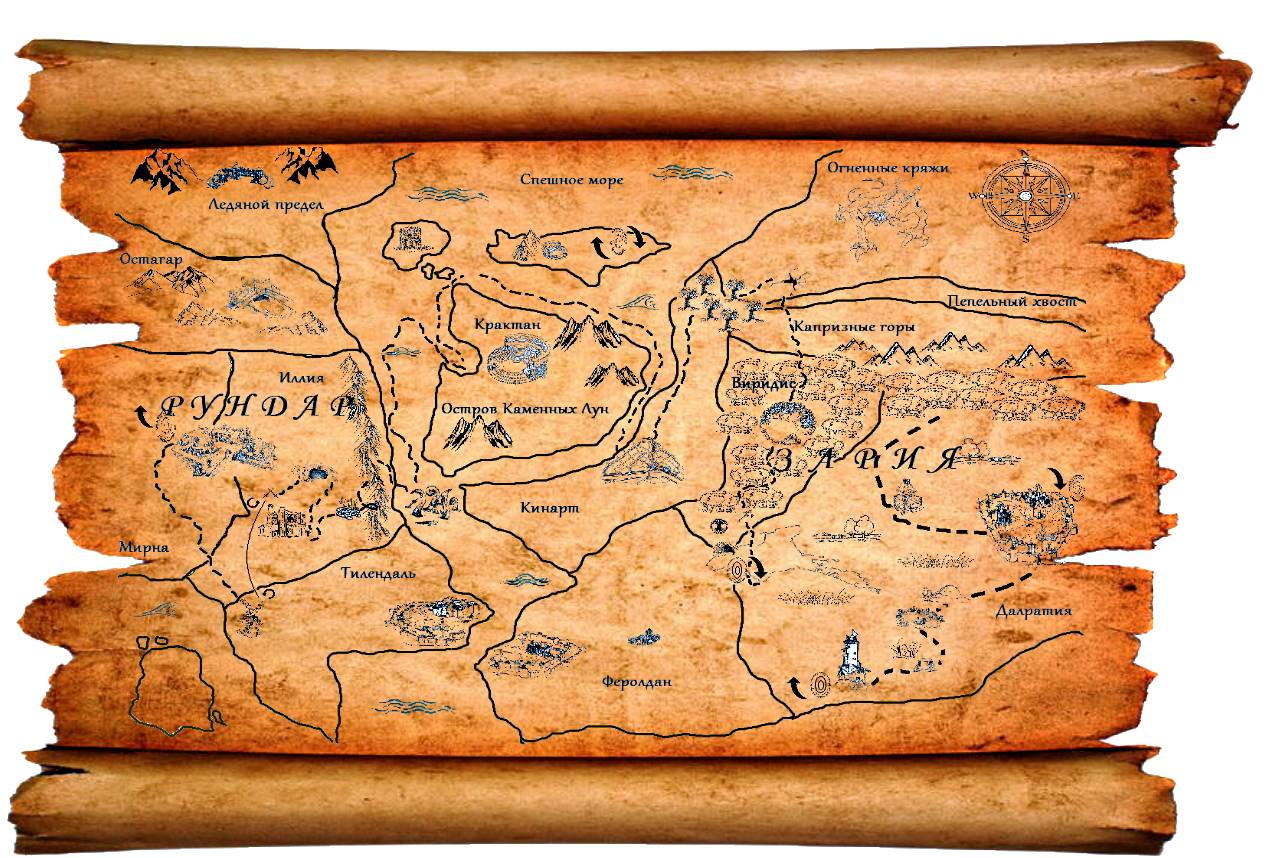 Спешное море
Огненные кряжи
N
W
S
Ледяной предел
Остагар
Пепельный хвост
Крактан
Капризные горы
Иллия
Виридис
РУНДАР
Остров Каменных Лун
ЗАРИЯ
Кинарт
Мирна
Тилендаль
Далратия
Феролдан